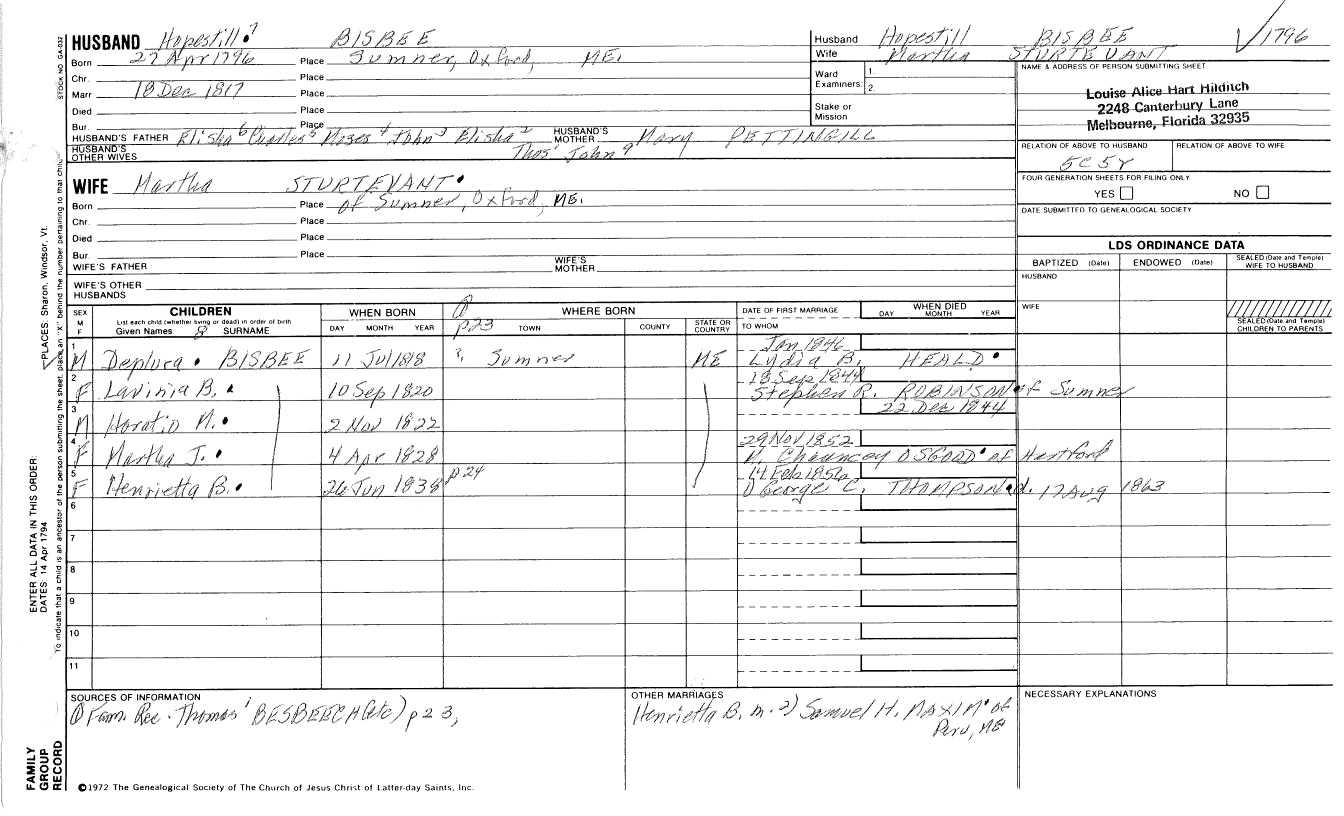 HUSBAND Hopestill 7 BISBEE
Born 27 Apr 1796 Place Sumner, Oxford, ME.
Chr. Place
Marr 18 Dec 1817 Place
Died Place
Bur. Place
HUSBAND'S FATHER Elisha 6 Charles 5 Moses 4 John 3 Elisha 2 HUSBAND'S MOTHER Mary PETTINGILL
HUSBAND'S OTHER WIVES Thos' John 9
WIFE Martha STURTEVANT
Born Place of Sumner, Oxford, ME.
Chr. Place
Died Place
Bur. Place
WIFE'S FATHER WIFE'S MOTHER
WIFE'S OTHER HUSBANDS
Husband Hopestill BISBEE √1796
Wife Martha STURTEVANT
Ward Examiners: 1. 2.
Stake or Mission
NAME & ADDRESS OF PERSON SUBMITTING SHEET.
Louise Alice Hart Hilditch
2248 Canterbury Lane
Melbourne, Florida 32935
RELATION OF ABOVE TO HUSBAND RELATION OF ABOVE TO WIFE
5C5r
FOUR GENERATION SHEETS FOR FILING ONLY
YES NO
DATE SUBMITTED TO GENEALOGICAL SOCIETY
LDS ORDINANCE DATA
BAPTIZED (Date) ENDOWED (Date) SEALED (Date and Temple) WIFE TO HUSBAND
HUSBAND
WIFE
SEALED (Date and Temple) CHILDREN TO PARENTS
SEX M F
CHILDREN
List each child (whether living or dead) in order of birth
Given Names SURNAME
WHEN BORN
DAY MONTH YEAR
WHERE BORN
p23 TOWN COUNTY STATE OR COUNTRY
DATE OF FIRST MARRIAGE
TO WHOM
WHEN DIED
DAY MONTH YEAR
Jan 1846
1 M Deplura BISBEE 11 Jul 1818 ?, Sumner ME Lydia B. HEALD
18 Sep 1844
2 F Lavinia B. 10 Sep 1820 Stephen R. ROBINSON of Sumner
22 Dec 1844
3 M Horatio M. 2 Nov 1822
29 Nov 1852
4 F Martha J. 4 Apr 1828 Chauncey OSGOOD of Hartford
14 Feb 1856
5 F Henrietta B. 26 Jun 1838 p24 George C. THOMPSON d. 17 Aug 1863
6
7
8
9
10
11
SOURCES OF INFORMATION
① Fam. Rec. Thomas' BESBEECH (etc) p 23,
OTHER MARRIAGES
Henrietta B. m. 2) Samuel H. MAXIM of
Peru, ME
NECESSARY EXPLANATIONS
©1972 The Genealogical Society of The Church of Jesus Christ of Latter-day Saints, Inc.
STOCK NO. GA-032
FAMILY GROUP RECORD
ENTER ALL DATA IN THIS ORDER:
DATES: 14 Apr 1794
PLACES: Sharon, Windsor, Vt.
To indicate that a child is an ancestor of the person submitting the sheet, place an "X" behind the number pertaining to that child.